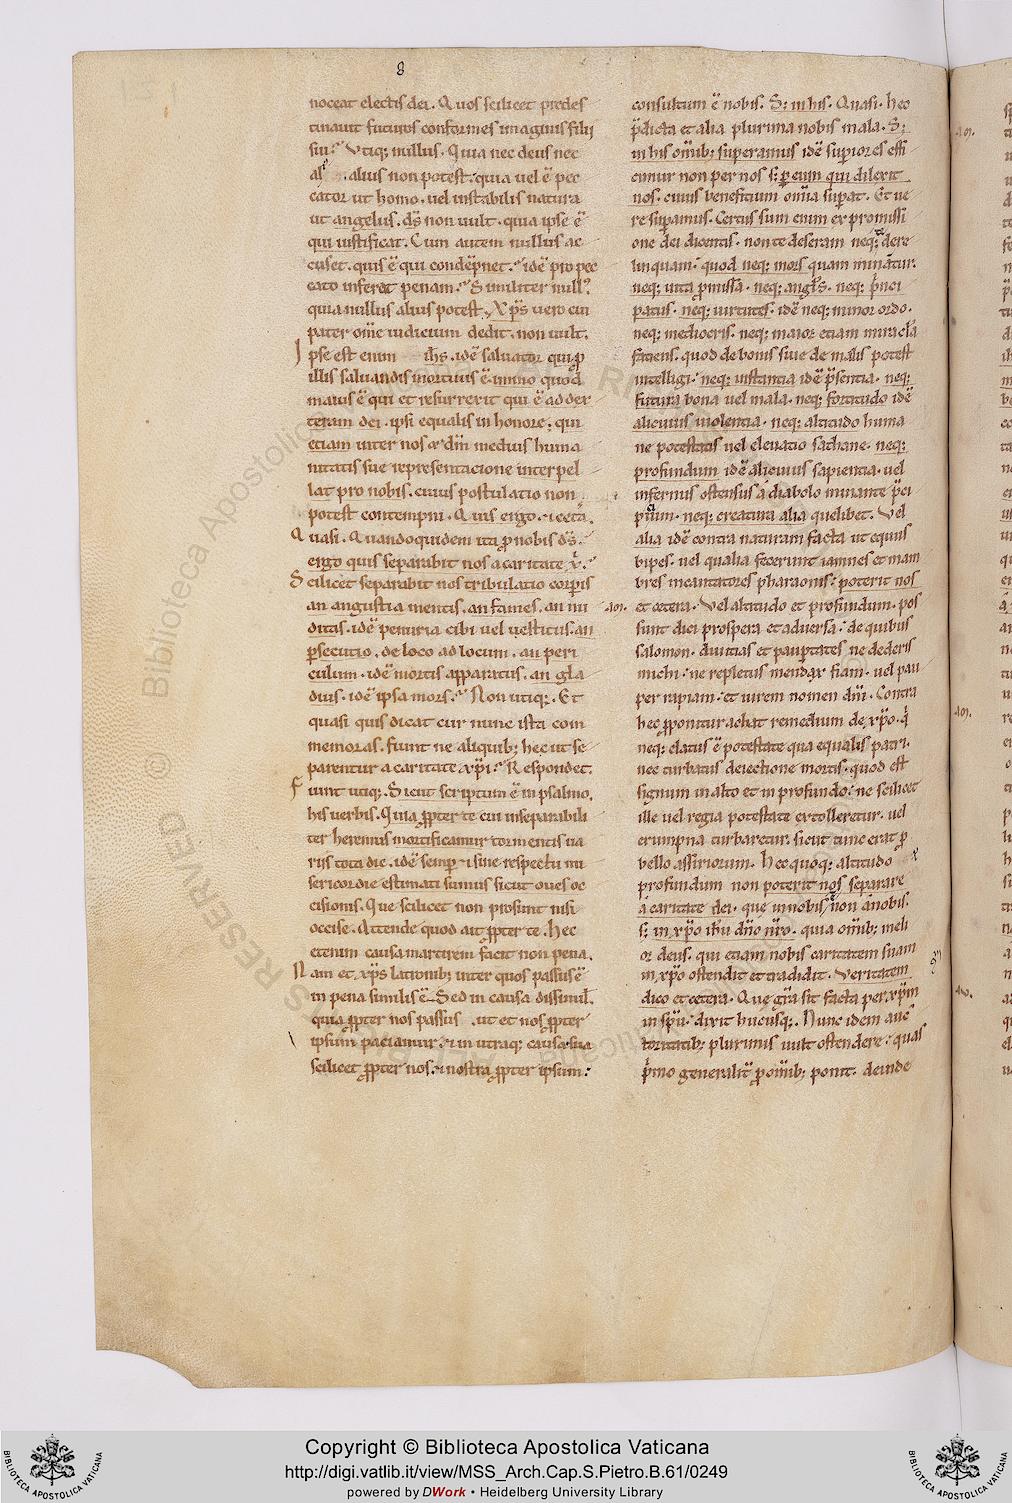 8
noceat electis dei. Quos scilicet predes
tinauit futuros conformes imaginis filij
sui? Vtiq; nullus. Quia nec deus nec
alius non potest. quia uel ē pec
cator ut homo. uel instabilis natura
ut angelus. ds̄ non uult. quia ipse ē
qui iustificat. Cum autem nullus ac
cuset. quis ē qui condēpnet. idē pro pec
cato inferet penam? Similiter null᷒.
quia nullus alius potest. Xp̄s uero cui
pater om̄e iudicium dedit. non uult.
Ipse est enim ih̄s. idē saluator qui ꝓ
illis saluandis mortuus ē. immo quod
maius ē qui et resurrexit qui ē ad dex
teram dei. ipsi equalis in honore; qui
etiam inter nos & dm̄ medius huma
nitatis sue representacione interpel
lat pro nobis. cuius postulatio non
potest contempni. Quis ergo. & cetā.
Quasi. Quandoquidem ita ꝓ nobis ds̄.
ergo quis separabit nos a caritate x̄.
Scilicet separabit nos tribulatio corp̄is
an angustia mentis. an fames. an nu
ditas. idē penuria cibi uel uestitus. an
ꝑsecutio. de loco ad locum. an peri
culum. idē mortis apparatus. an gla
dius. idē ipsa mors? Non utiq;. Et
quasi quis dicat cur nunc ista com
memoras. fiunt ne aliquib; hec ut se
parentur a caritate xp̄i? Respondet.
Fiunt utiq;. Sicut scriptum ē in psalmo.
his uerbis. Quia ꝓpter te cui inseparabili
ter heremus mortificamur tormentis ua
rijs tota die. idē semꝑ & sine respectu mi
sericordie estimati sumus sicut oues oc
cisionis. Que scilicet non prosunt nisi
occise. Attende quod ait ꝓpter te. Hec
etenim causa martirem facit non pena.
Nam et xp̄s latronib; inter quos passus ē
in pena similis ē. Sed in causa dissimil̄.
quia ꝓpter nos passus . ut et nos ꝓpter
ipsum paciamur. & in utraq; causa. sua
scilicet ꝓpter nos. & nostra ꝓpter ipsum.
consultum ē nobis. S; in his. Quasi. hec
p̄dicta et alia plurima nobis mala. S;
in his om̄ib; superamus idē suꝑiores effi
cimur non per nos s; ꝑ eum qui dilexit
nos. cuius benefitium om̄ia suꝑat. Et ue
re suꝑamus. Certus sum enim ex promissi
one dei dicentis. non te deseram neq; dere
linquam. quod neq; mors quam minātur.
neq; uita ꝓmissa. neq; angl̄s. neq; p̄nci
patus. neq; uirtutes. idē neq; minor ordo.
neq; mediocris. neq; maior etiam miracl̄a
faciens. quod de bonis siue de malis potest
intelligi. neq; instantia idē p̄sentia. neq;
futura bona uel mala. neq; fortitudo idē
alicuius uiolentia. neq; altitudo huma
ne potestatis uel eleuatio sathane. neq;
profundum idē alicuius sapientia. uel
infernus ostensus a diabolo minante p̄ci
pitium. neq; creatura alia quelibet. Vel
alia idē contra naturam facta ut equus
bipes. uel qualia fecerunt iamnes et mam
bres incantatores pharaonis. poterit nos
aug. et cetera. Vel altitudo et profundum. pos
sunt dici prospera et aduersa. de quibus
salomon. diuitias et pauꝑtates ne dederis
michi. ne repletus mendax fiam. uel pau
per rapiam. et iurem nomen dn̄i. Contra
hec ꝓponitur achat remedium de xp̄o. q̄
neq; elatus ē potestate qua equalis patri.
nec turbatus deiectione mortis. quod est
signum in alto et in profundo. ne scilicet
ille uel regia potestate extolleretur. uel
erumpna turbaretur. sicut tunc erat ꝓ
bello assiriorum. Hec quoq; altitudo
profundum non poterit nos separare
a caritate dei. que in nobis non a nobis.
s; in xp̄o ih̄u dn̄o nr̄o. quia om̄ib; meli
or deus. qui etiam nobis caritatem suam
in xp̄o ostendit et tradidit. Veritatem
dico et cetera. Que gr̄a sit facta per xp̄m
in sp̄u. dixit hucusq;. Nunc idem auc
toritatib; plurimis uult ostendere. quas
p̄mo generalit̄ ꝓ om̄ib; ponit. deinde
© Biblioteca Apostolica Vaticana
Copyright © Biblioteca Apostolica Vaticana
http://digi.vatlib.it/view/MSS_Arch.Cap.S.Pietro.B.61/0249
powered by DWork • Heidelberg University Library
BIBLIOTECA APOSTOLICA VATICANA
BIBLIOTECA APOSTOLICA VATICANA